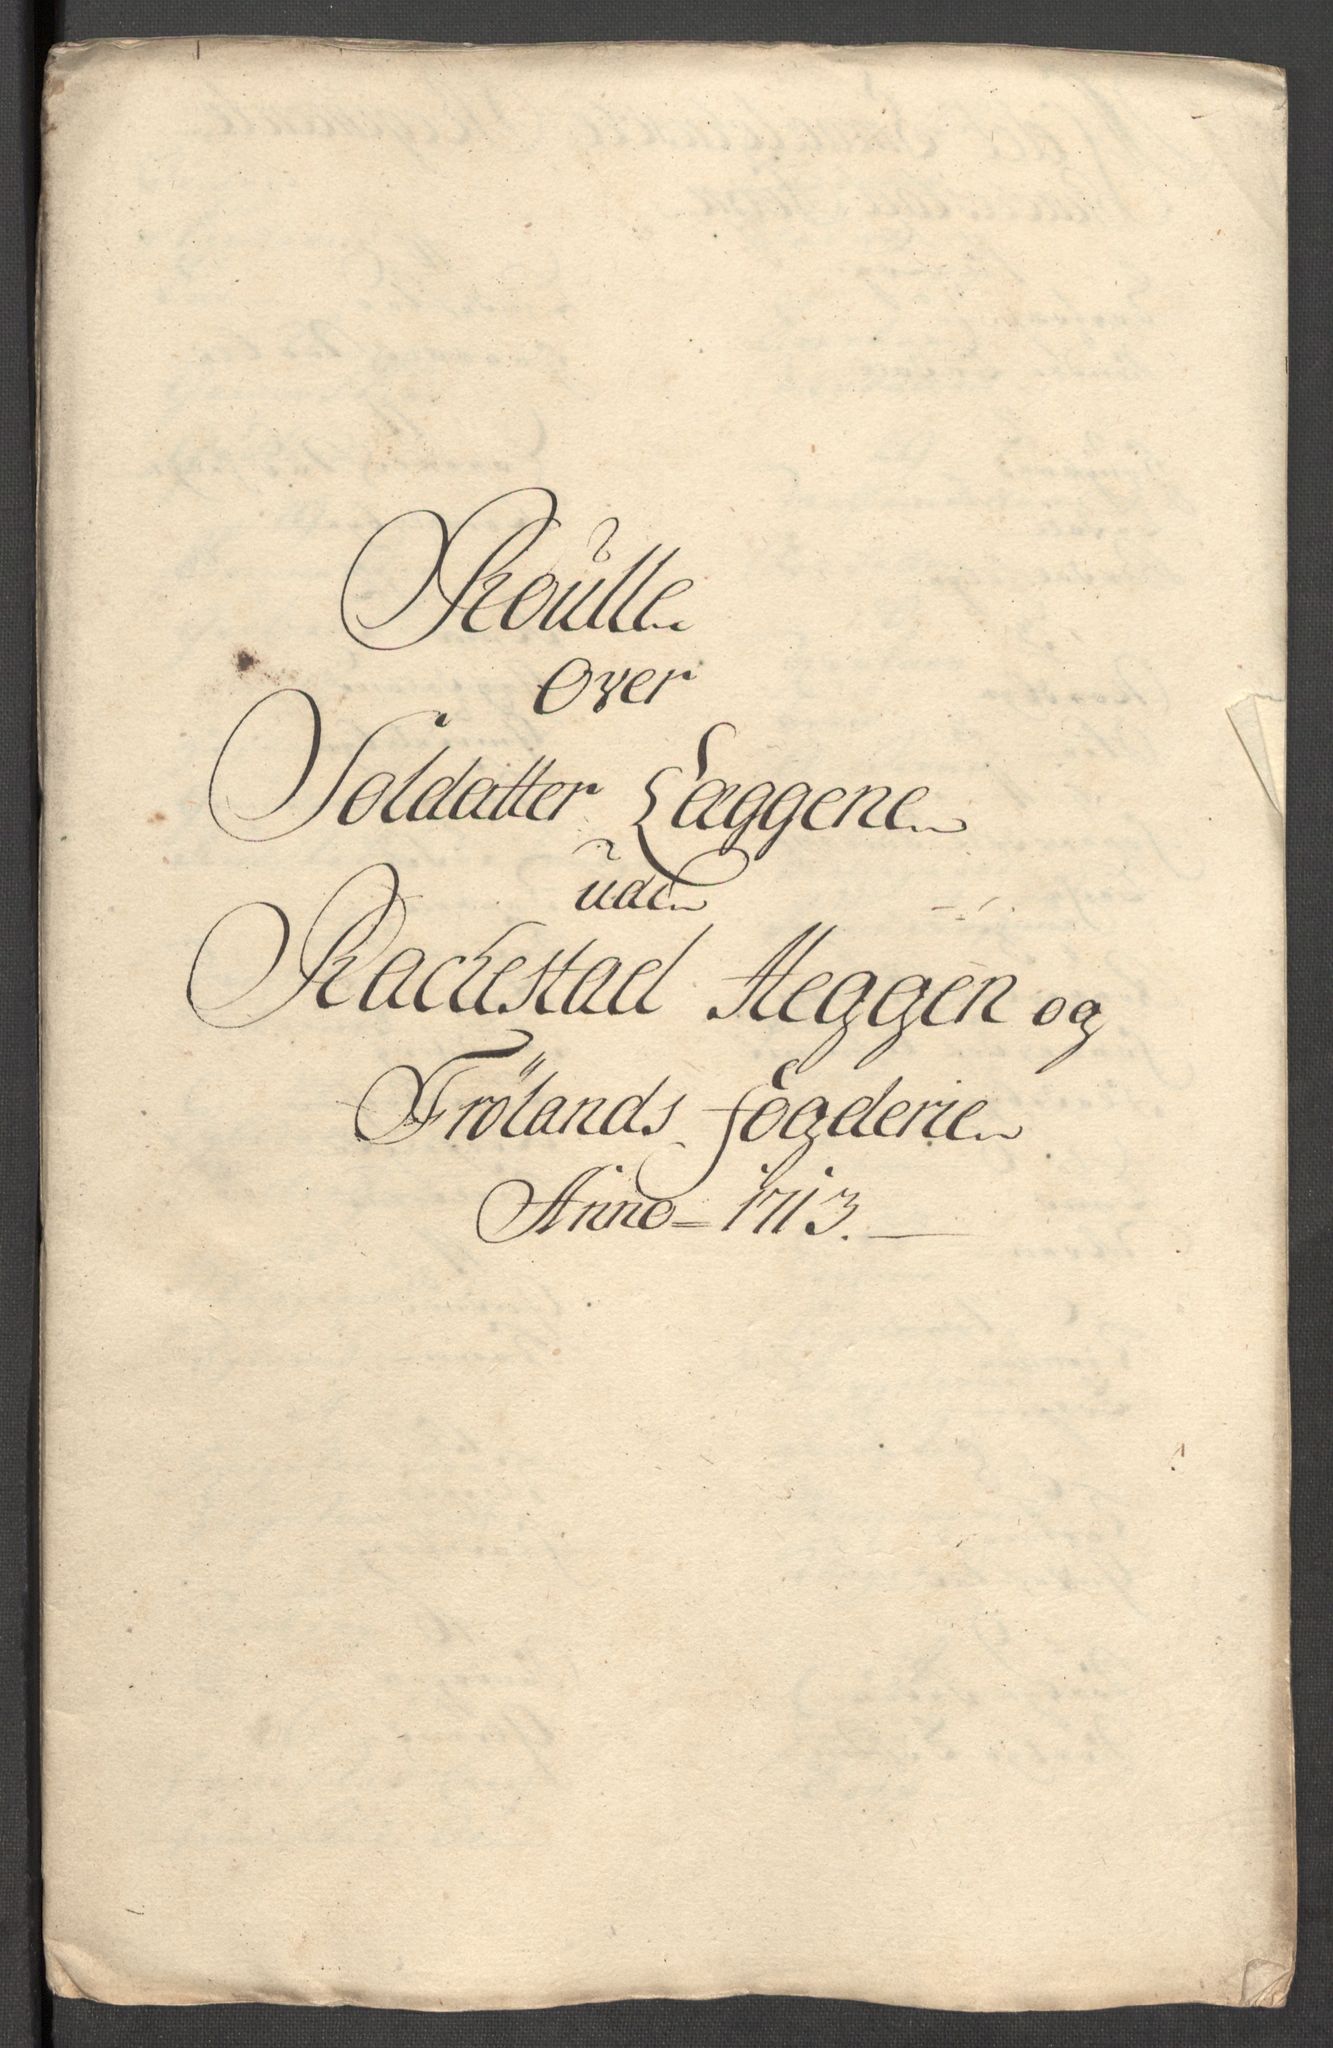 Roulle
Over
Soldatter Læggene
udi
Rackestad Heggen og
Frölands fogderie
Anno 1713.